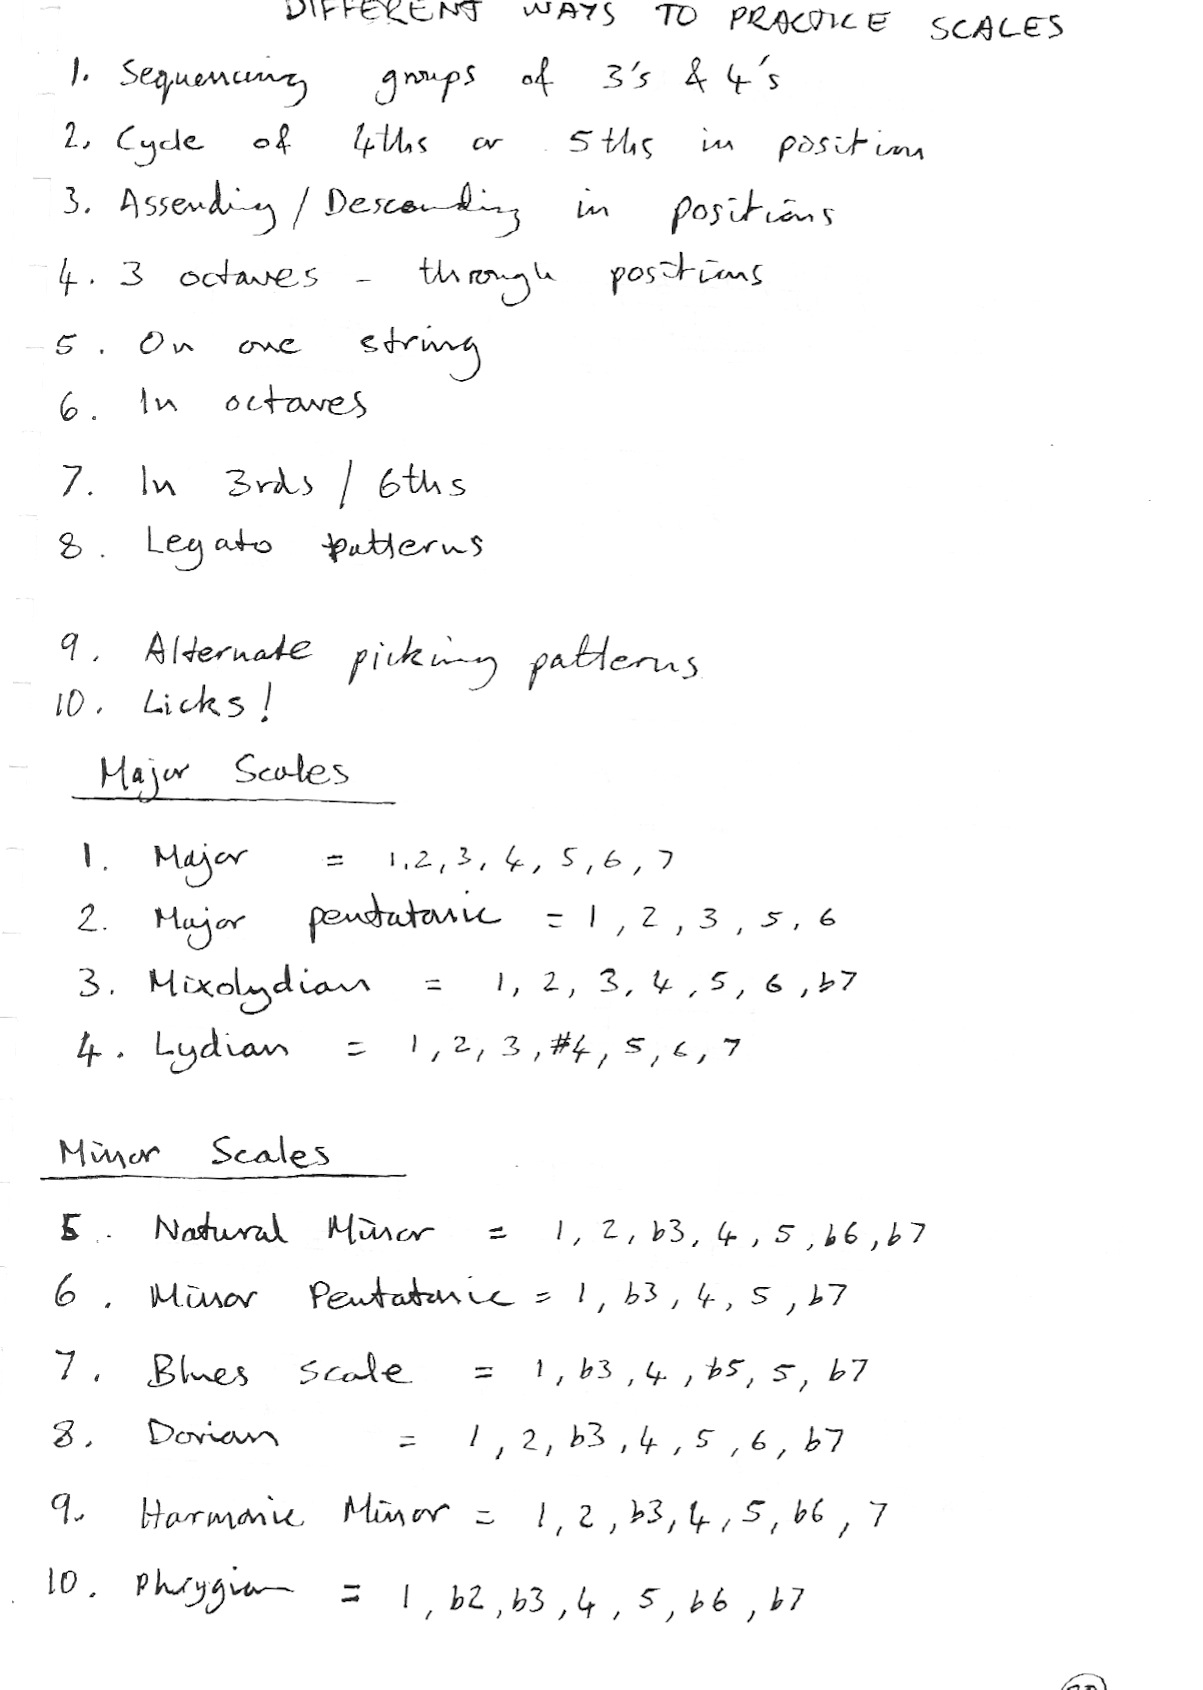 DIFFERENT WAYS TO PRACTICE SCALES
1. Sequencing groups of 3's & 4's
2. Cycle of 4ths or 5ths in position
3. Assending / Descending in positions
4. 3 octaves - through positions
5. On one string
6. In octaves
7. In 3rds / 6ths
8. Legato patterns
9. Alternate picking patterns
10. Licks!
Major Scales
1. Major = 1,2,3,4,5,6,7
2. Major pentatonic = 1,2,3,5,6
3. Mixolydian = 1,2,3,4,5,6,b7
4. Lydian = 1,2,3,#4,5,6,7
Minor Scales
5. Natural Minor = 1,2,b3,4,5,b6,b7
6. Minor Pentatonic = 1,b3,4,5,b7
7. Blues scale = 1,b3,4,b5,5,b7
8. Dorian = 1,2,b3,4,5,6,b7
9. Harmonic Minor = 1,2,b3,4,5,b6,7
10. Phrygian = 1,b2,b3,4,5,b6,b7